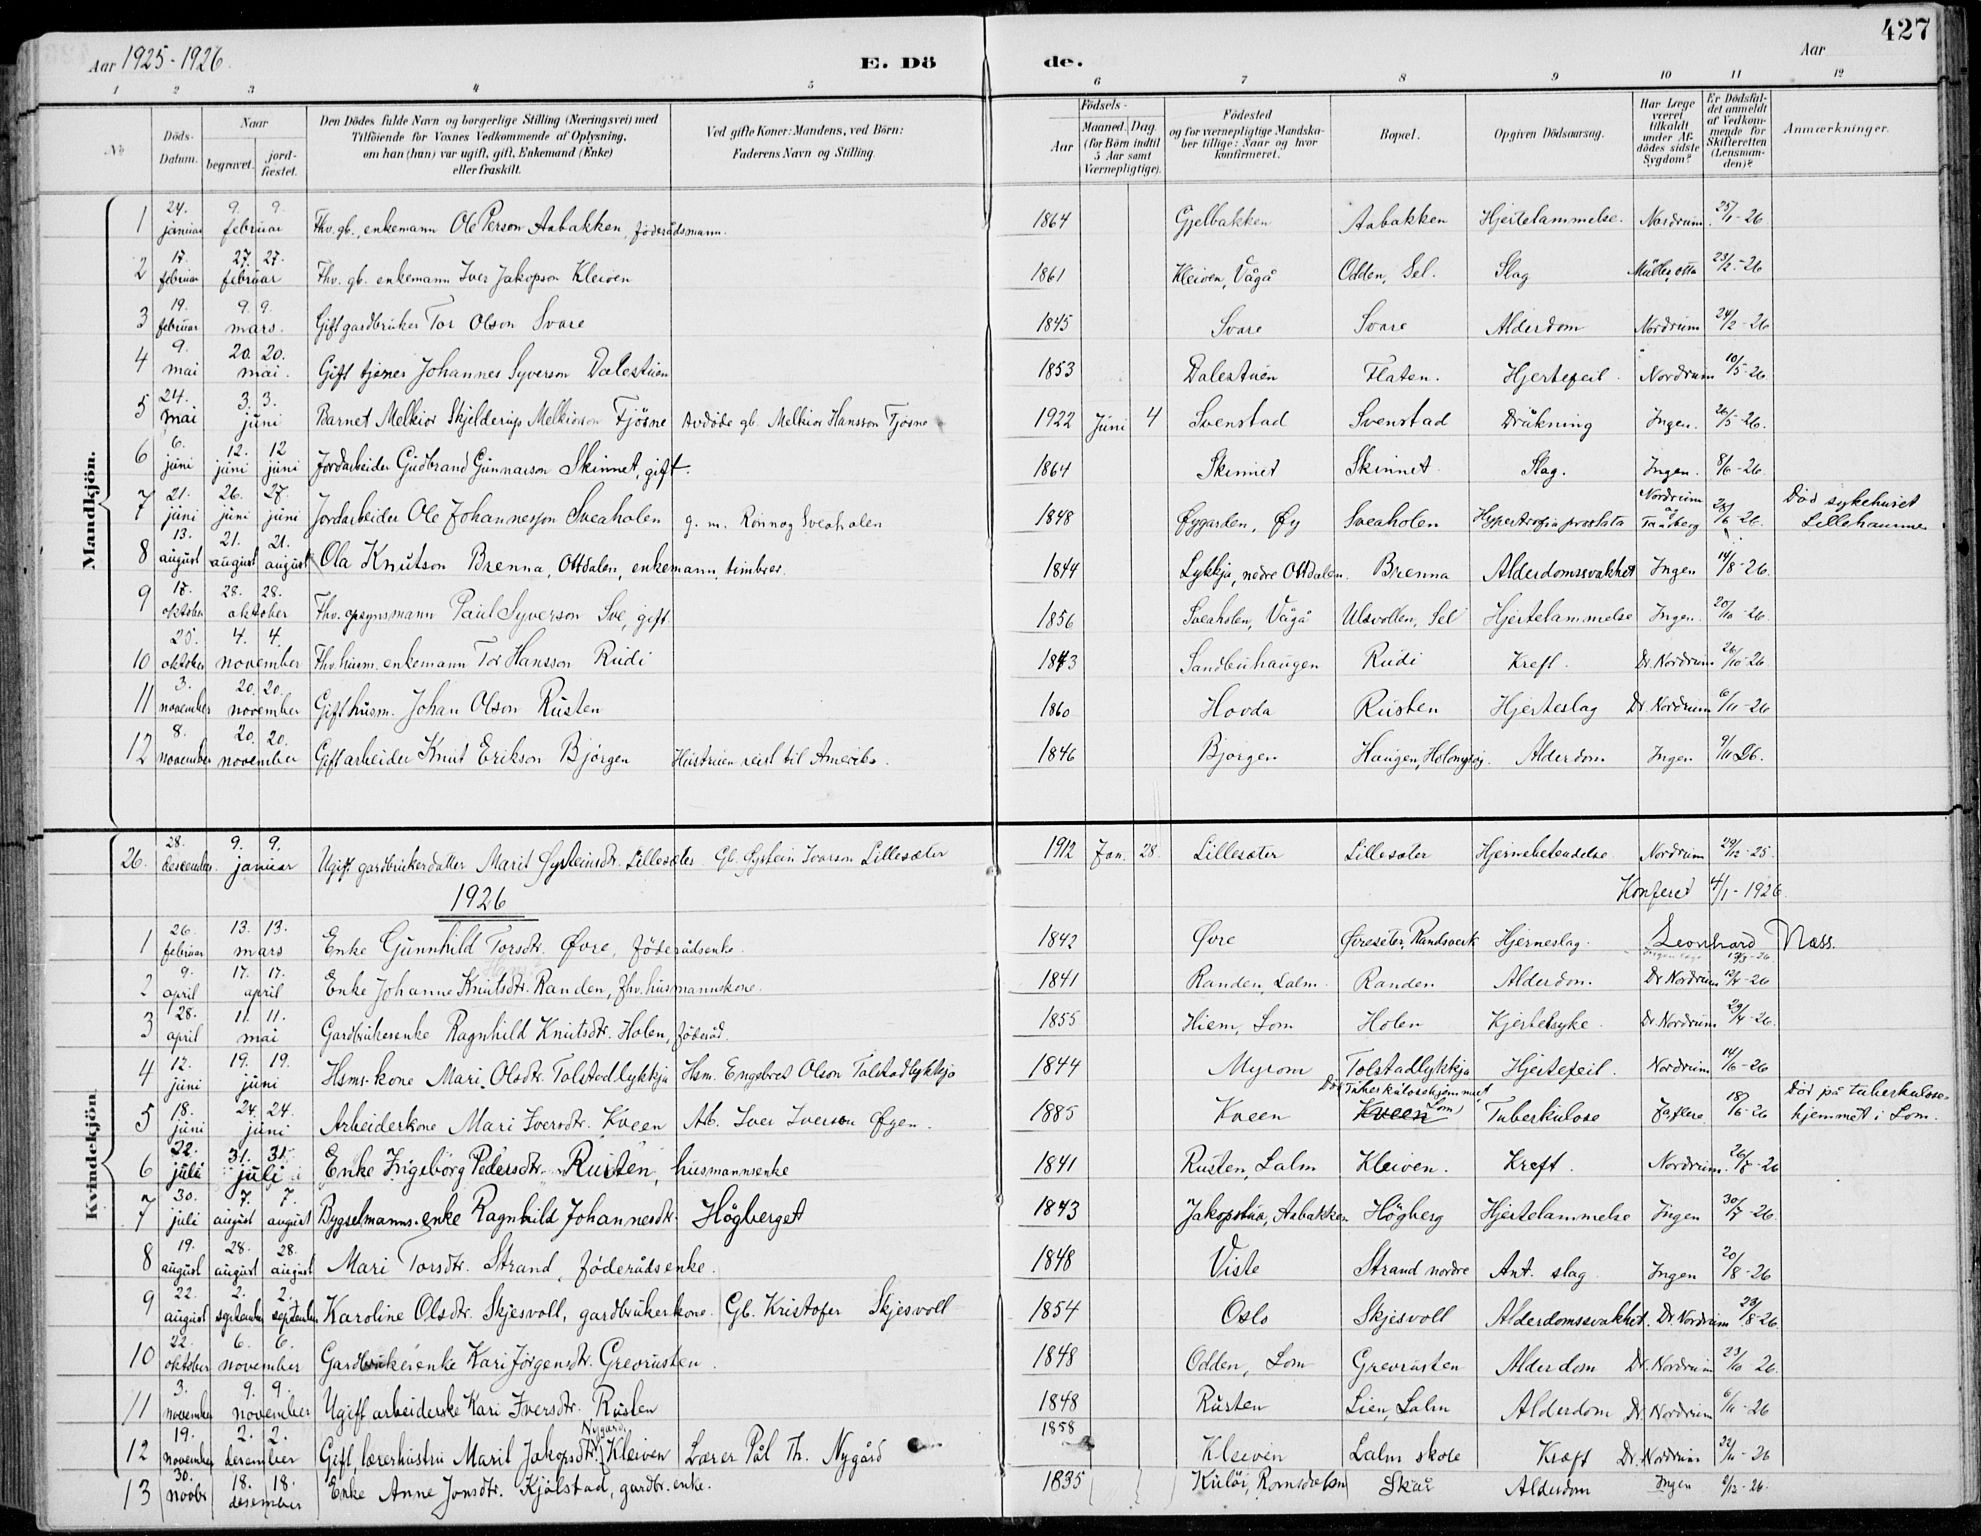 Aar 1925-1926.
E. Dö de.
Aar
427
1 2 3 4 5 6 7 8 9 10 11 12
No
Döds-Datum.
Naar
begravet.
jord-fæstet.
Den Dödes fulde Navn og borgerlige Stilling (Næringsvei) med
Tilföiende for Voxnes Vedkommende af Oplysning,
om han (hun) var ugift, gift, Enkemand (Enke)
eller fraskilt.
Ved gifte Koner: Mandens, ved Börn:
Faderens Navn og Stilling.
Födsels-
Aar
Maaned. Dag.
(for Börn indtil
5 Aar samt
Værnepligtige).
Födested
og for værnepligtige Mandska-
ber tillige: Naar og hvor
konfirmeret.
Bopæl.
Opgiven Dödsaarsag.
Har Læge
været
tilkaldt
under Af-
dödes sidste
Sygdom?
Er Dödsfal-
det anmeldt
af Vedkom-
mende for
Skifteretten
(Lensman-
den)?
Anmærkninger.
Mandkjön.
1 24. januar 9. 9. februar Fhv. gb., enkemann Ole Person Aabakken, föderådsmann. 1864 Gjelbakken Aabakken Hjertelammelse. Nordrum 25/1-26.
2 17. februar 27. 27. februar Fhv. gb. enkemann Iver Jakopson Kleiven 1861 Kleiven, Vågå Odden, Sel. Slag Müller, Otta 23/2-26
3 19. februar 9. 9. mars. Gift gardbruker Tor Olson Svare 1845 Svare Svare Alderdom Nordrum 24/2-26
4 9. mai 20. 20. mai. Gift tjener Johannes Syverson Dalestuen 1853 Dalestuen Flaten. Hjertefeil. Nordrum 10/5-26
5 24. mai 3. 3. juni Barnet Melkior Skjelderup Melkiorson Fjösne Avdöde gb. Melkior Hansson Fjösne 1922 Juni 4 Svenstad Svenstad Drukning Ingen. 26/5-26.
6 6. juni 12. juni 12 juni Jordarbeider Gudbrand Gunnarson Skinnet, gift. 1864 Skinnet Skinnet Slag. Ingen. 8/6-26.
7 21. juni 26. juni 27. juni Jordarbeider Ole Johannesson Sveaholen g. m. Rönnog Sveaholen 1848 Øygarden, Øy Sveaholen Hypertrofia prostata Nordrum og Tandberg 28/6-26. Död sykehuset Lillehammer
8 13. august 21. august 21. august Ola Knutson Brenna, Ottdalen, enkemann, timbrer. 1844 Lykkja, nedre Ottdalen. Brenna Alderdomssvakhet Ingen 14/8-26.
9 17. oktober 28. 28. oktober Fhv. opsynsmann Paul Syverson Sve, gift. 1856 Sveaholen, Vågå Ulsvollen, Sel Hjertelammelse Ingen. 20/10-26.
10 25. oktober 4. 4. november Fhv. husm. enkemann Tor Hansson Rudi 1843 Sandbuhaugen Rudi Kreft. Dr. Nordrum 26/10-26
11 3. november 20. 20. november Gift husm. Johan Olson Rusten 1860 Hovda Rusten Hjerteslag Dr. Nordrum 6/11-26
12 8. november 20. 20. november Gift arbeider Knut Erikson Bjørgen Hustruen reist til Amerika. 1846 Bjørgen Haugen, Alderdom Ingen 9/11 26.
Kvindekjön.
26. 28. desember. 9. 9. januar Ugift gardbrukerdatter Marit Øysteinsdtr. Lillesæter Gb. Øystein Ivarson Lillesæter 1912 Jan. 28. Lillesæter Lillesæter Hjernebetendelse Nordrum 29/12-25.
1926 Konferert 4/1-1926.
Leonhard Næss.
1 26. februar 13. 13. mars Enke Gunnhild Torsdtr. Øvre, föderådsenke. 1842 Øvre Øvreseter, Randsverk Hjerneslag.
2 9. april 17. 17. april Enke Johanne Knutsdtr. Randen, fhv. husmannskone. 1841 Randen, Lalm Randen Alderdom. Dr Nordrum 12/4-26
3 28. april 11. 11. mai Gardbrukerenke Ragnhild Knutsdtr. Holen, föderåd. 1855 Hiem, Lom Holen Hjertesyke. Dr. Nordrum 29/4-26.
4 12. juni 19. 19. juni Hsms.-kone Mari Olsdtr. Tolstadlykkja Hsm. Engebret Olson Tolstadlykkja 1844 Myrom Tolstadlykkja Hjertefeil. Nordrum 14/6-26
5 18. juni 24. 24. juni Arbeiderkone Mari Iversdtr. Kveen Arb. Iver Iverson Øygen. 1885 Kveen Död (Tuberkulosehjemmet Lom) Kveen Tuberkulose Ja, flere. 18/6-26 Död på tuberkulose-hjemmet i Lom.
6 22. juli 31. 31. juli Enke Ingebörg Pedersdtr. Rusten, husmannsenke 1841 Rusten, Lalm Kleiven. Kreft. Nordrum. 26/7-26
7 30. juli 7. august 7. august Bygselmanns-enke Ragnhild Johannesdtr. Högberget 1843 Jakopstua, Aabakken Högberg Hjertelammelse Ingen 30/7-26.
8 19. august 28. august 28. august Mari Torsdtr. Strand, föderådsenke. 1848 Viste Strand nordre Ant. slag. Ingen 20/8-26
9 22. august 2. september 2. september Karoline Olsdtr. Skjesvoll, gardbrukerkone. Gb. Kristofer Skjesvoll 1854 Oslo Skjesvoll Alderdomssvakhet. Dr. Nordrum 23/8-26.
10 22. oktober 6. 6. november Gardbrukerenke Kari Jørgensdtr. Grevrusten. 1848 Odden, Lom Grevrusten Alderdom Dr. Nordrum 23/10-26.
11 3. november 9. 9. november Ugift arbeiderske Kari Iversdtr. Rusten 1848 Rusten Lien, Lalm Alderdom Dr. Nordrum 6/11-26
12 19. november 2. 2. desember Gift, lærerhustru Marit Jakopsdtr. Nygård, Kleiven Lærer Pål Th. Nygård 1858 Kleiven Lalm skole Kreft Dr. Nordrum 22/11-26
13 30. novbr 18. 18. desember Enke Anne Jonsdtr. Kjölstad, gardbr.enke. 1835 Romsdalen Skår Alderdom Ingen 2/12-26.